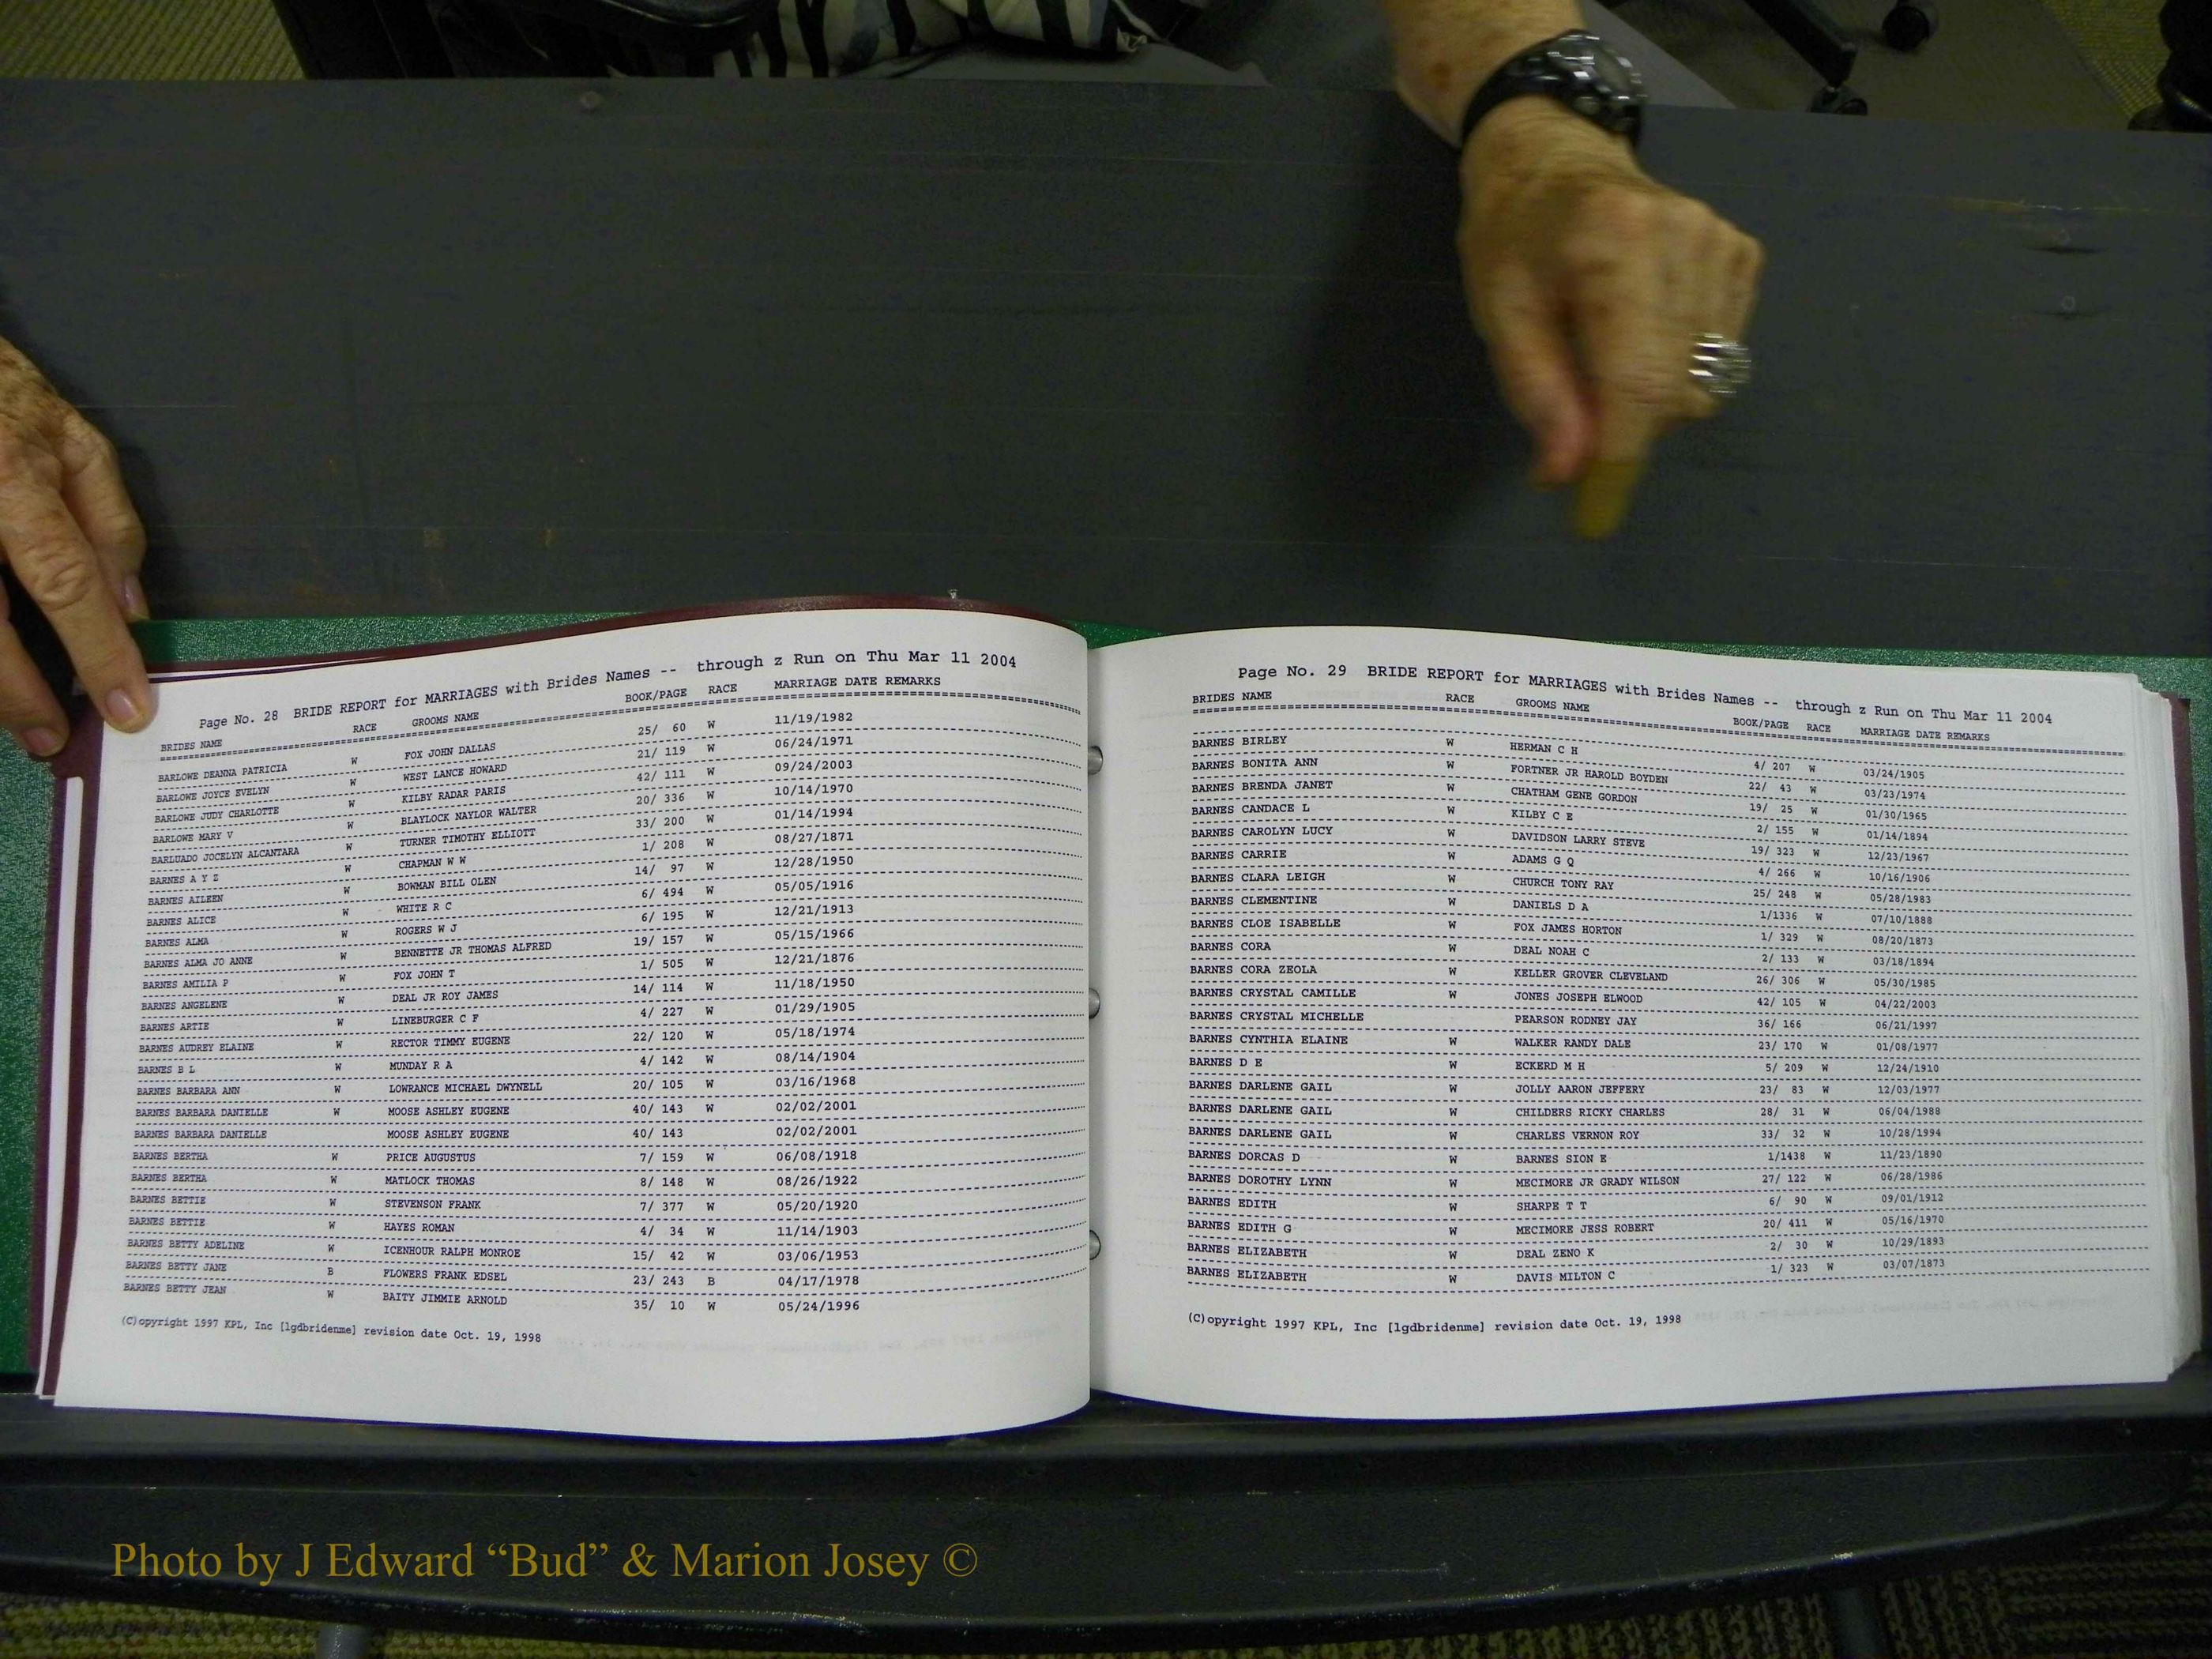 Page No. 28 BRIDE REPORT for MARRIAGES with Brides Names -- through z Run on Thu Mar 11 2004
BRIDES NAME RACE GROOMS NAME BOOK/PAGE RACE MARRIAGE DATE REMARKS
BARLOWE DEANNA PATRICIA W FOX JOHN DALLAS 25/ 60 W 11/19/1982
BARLOWE JOYCE EVELYN W WEST LANCE HOWARD 21/ 119 W 06/24/1971
BARLOWE JUDY CHARLOTTE W KILBY RADAR PARIS 42/ 111 W 09/24/2003
BARLOWE MARY V W BLAYLOCK NAYLOR WALTER 20/ 336 W 10/14/1970
BARLUADO JOCELYN ALCANTARA W TURNER TIMOTHY ELLIOTT 33/ 200 W 01/14/1994
BARNES A Y Z W CHAPMAN W W 1/ 208 W 08/27/1871
BARNES AILEEN W BOWMAN BILL OLEN 14/ 97 W 12/28/1950
BARNES ALICE W WHITE R C 6/ 494 W 05/05/1916
BARNES ALMA W ROGERS W J 6/ 195 W 12/21/1913
BARNES ALMA JO ANNE W BENNETTE JR THOMAS ALFRED 19/ 157 W 05/15/1966
BARNES AMILIA P W FOX JOHN T 1/ 505 W 12/21/1876
BARNES ANGELENE W DEAL JR ROY JAMES 14/ 114 W 11/18/1950
BARNES ARTIE W LINEBURGER C F 4/ 227 W 01/29/1905
BARNES AUDREY ELAINE W RECTOR TIMMY EUGENE 22/ 120 W 05/18/1974
BARNES B L W MUNDAY R A 4/ 142 W 08/14/1904
BARNES BARBARA ANN W LOWRANCE MICHAEL DWYNELL 20/ 105 W 03/16/1968
BARNES BARBARA DANIELLE W MOOSE ASHLEY EUGENE 40/ 143 W 02/02/2001
BARNES BARBARA DANIELLE MOOSE ASHLEY EUGENE 40/ 143 02/02/2001
BARNES BERTHA W PRICE AUGUSTUS 7/ 159 W 06/08/1918
BARNES BERTHA W MATLOCK THOMAS 8/ 148 W 08/26/1922
BARNES BETTIE W STEVENSON FRANK 7/ 377 W 05/20/1920
BARNES BETTIE W HAYES ROMAN 4/ 34 W 11/14/1903
BARNES BETTY ADELINE W ICENHOUR RALPH MONROE 15/ 42 W 03/06/1953
BARNES BETTY JANE B FLOWERS FRANK EDSEL 23/ 243 B 04/17/1978
BARNES BETTY JEAN W BAITY JIMMIE ARNOLD 35/ 10 W 05/24/1996
(C)opyright 1997 KPL, Inc [lgdbridenme] revision date Oct. 19, 1998
Page No. 29 BRIDE REPORT for MARRIAGES with Brides Names -- through z Run on Thu Mar 11 2004
BRIDES NAME RACE GROOMS NAME BOOK/PAGE RACE MARRIAGE DATE REMARKS
BARNES BIRLEY W HERMAN C H 4/ 207 W 03/24/1905
BARNES BONITA ANN W FORTNER JR HAROLD BOYDEN 22/ 43 W 03/23/1974
BARNES BRENDA JANET W CHATHAM GENE GORDON 19/ 25 W 01/30/1965
BARNES CANDACE L W KILBY C E 2/ 155 W 01/14/1894
BARNES CAROLYN LUCY W DAVIDSON LARRY STEVE 19/ 323 W 12/23/1967
BARNES CARRIE W ADAMS G Q 4/ 266 W 10/16/1906
BARNES CLARA LEIGH W CHURCH TONY RAY 25/ 248 W 05/28/1983
BARNES CLEMENTINE W DANIELS D A 1/1336 W 07/10/1888
BARNES CLOE ISABELLE W FOX JAMES HORTON 1/ 329 W 08/20/1873
BARNES CORA W DEAL NOAH C 2/ 133 W 03/18/1894
BARNES CORA ZEOLA W KELLER GROVER CLEVELAND 26/ 306 W 05/30/1985
BARNES CRYSTAL CAMILLE W JONES JOSEPH ELWOOD 42/ 105 W 04/22/2003
BARNES CRYSTAL MICHELLE PEARSON RODNEY JAY 36/ 166 06/21/1997
BARNES CYNTHIA ELAINE W WALKER RANDY DALE 23/ 170 W 01/08/1977
BARNES D E W ECKERD M H 5/ 209 W 12/24/1910
BARNES DARLENE GAIL W JOLLY AARON JEFFERY 23/ 83 W 12/03/1977
BARNES DARLENE GAIL W CHILDERS RICKY CHARLES 28/ 31 W 06/04/1988
BARNES DARLENE GAIL W CHARLES VERNON ROY 33/ 32 W 10/28/1994
BARNES DORCAS D W BARNES SION E 1/1438 W 11/23/1890
BARNES DOROTHY LYNN W MECIMORE JR GRADY WILSON 27/ 122 W 06/28/1986
BARNES EDITH W SHARPE T T 6/ 90 W 09/01/1912
BARNES EDITH G W MECIMORE JESS ROBERT 20/ 411 W 05/16/1970
BARNES ELIZABETH W DEAL ZENO K 2/ 30 W 10/29/1893
BARNES ELIZABETH W DAVIS MILTON C 1/ 323 W 03/07/1873
(C)opyright 1997 KPL, Inc [lgdbridenme] revision date Oct. 19, 1998
Photo by J Edward “Bud” & Marion Josey ©